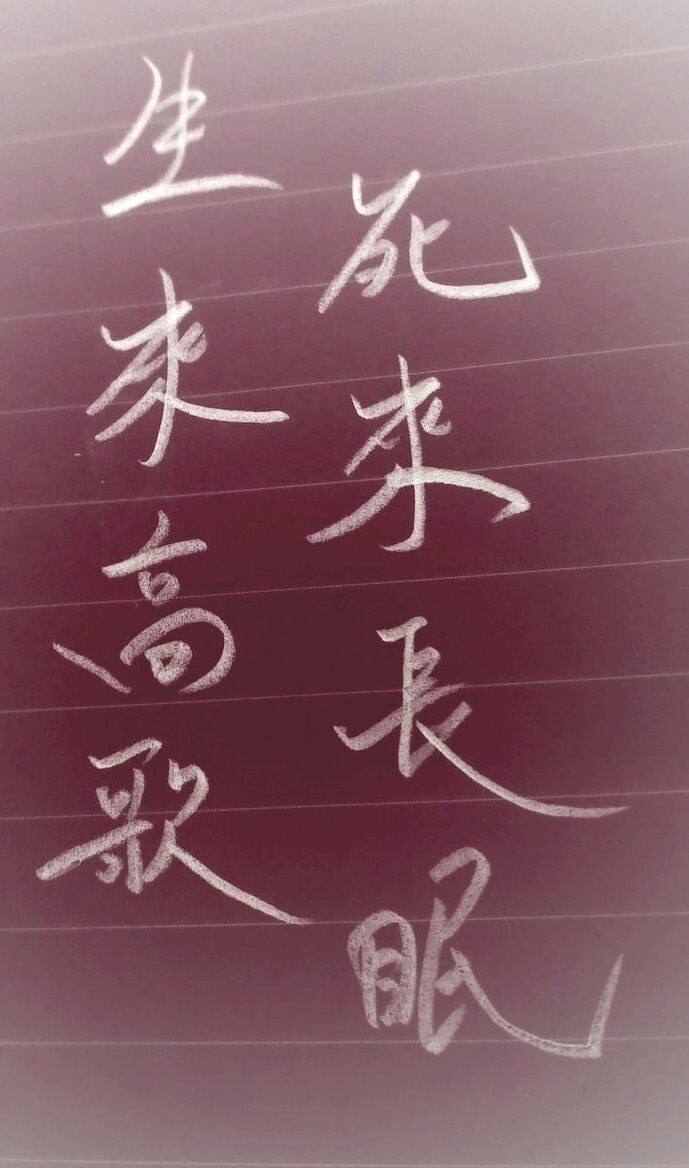 生來高歌
死來長眠